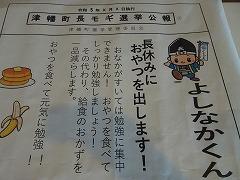 令和5年8月8日執行
津幡町長モギ選挙公報
津幡町選挙管理委員会
よしなかくん
長休みに
おやつを出します！
おなかがすいては勉強に集中
できません！おやつを食べて
しっかり勉強しましょう！
その代わり、給食のおかずを
一品減らします。
おやつを食べて元気に勉強！！